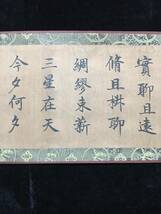 實聊且遠
脩且椒聊
綢繆束薪
三星在天
今夕何夕